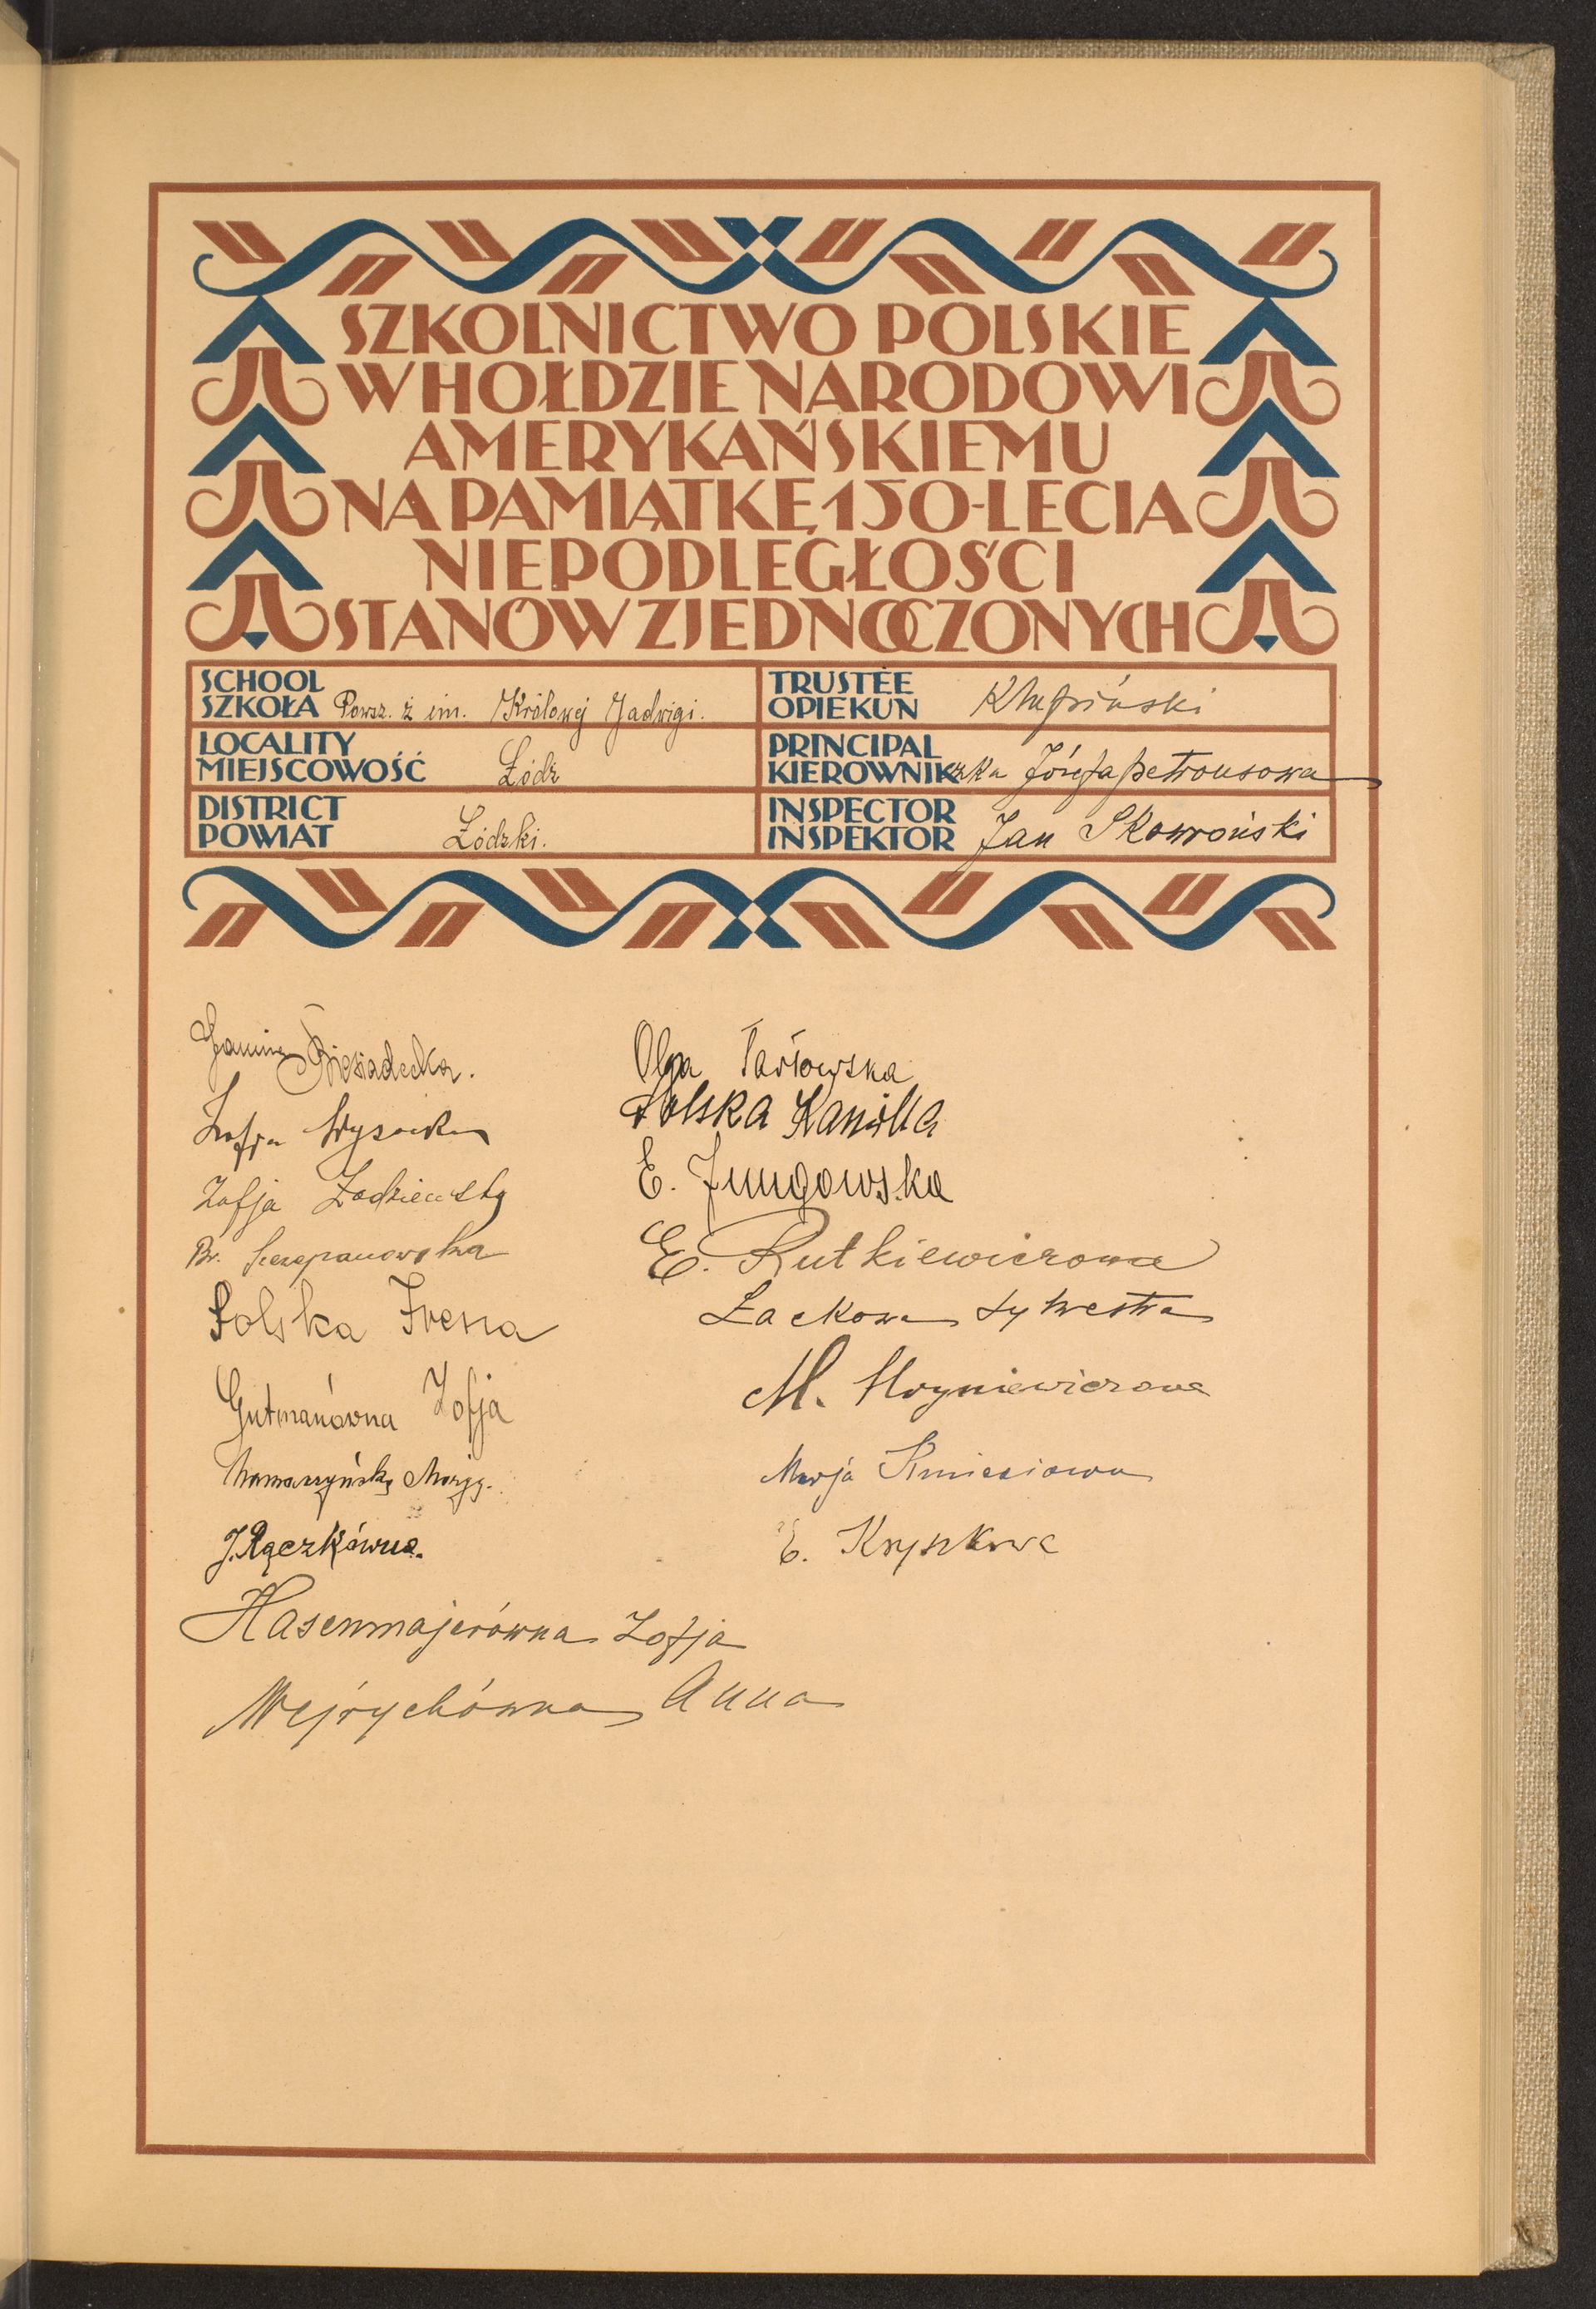 SZKOLNICTWO POLSKIE
W HOŁDZIE NARODOWI
AMERYKAŃSKIEMU
NA PAMIĄTKĘ 150-LECIA
NIEPODLEGŁOŚCI
STANÓW ZJEDNOCZONYCH
SCHOOL
SZKOŁA Powsz. ż im. Królowej Jadwigi.
LOCALITY
MIEJSCOWOŚĆ Łódź
DISTRICT
POWIAT Łódzki.
TRUSTEE
OPIEKUN
PRINCIPAL
KIEROWNIKczka Józefa Petronsowa
INSPECTOR
INSPEKTOR Jan Skowroński
Janina Biesiadecka.
Zofja Wysocka
Zofja
Br. Szczepanowska
Polska Irena
Gutmanówna Zofja
J. Rączkówna.
Hasenmajerówna Zofja
Wejrychówna Anna
Olga Tarłowska
Polska Kamilla
E. Jungowska
E. Rutkiewiczowa
Żackowa Sylwestra
M.
Marja Kmieciowa
E.